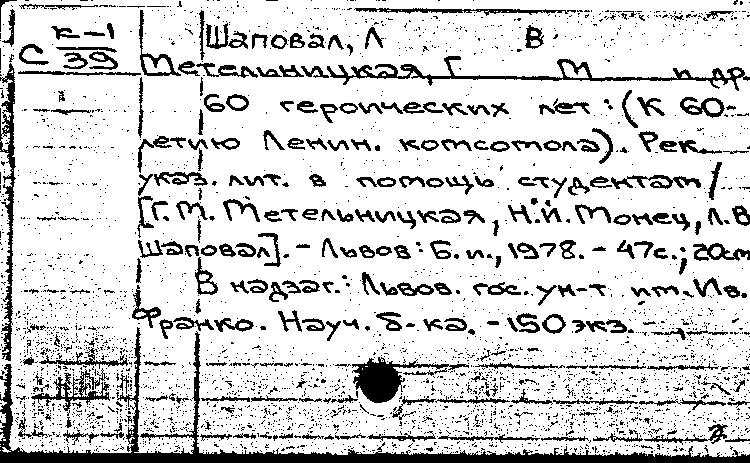 К-1 Шаповал, Л В
С 39
Метельницкая, Г М и др.
60 героических лет: (К 60-
летию Ленин. комсомола). Рек.
указ. лит. в помощь студентам/
[Г.М. Метельницкая, Н.И. Монец, Л.В
Шаповал]. - Львов: Б.и., 1978. - 47с.; 20см
В надзаг.: Львов. гос. ун-т им. Ив.
Франко. Науч. б-ка. - 150 экз. -